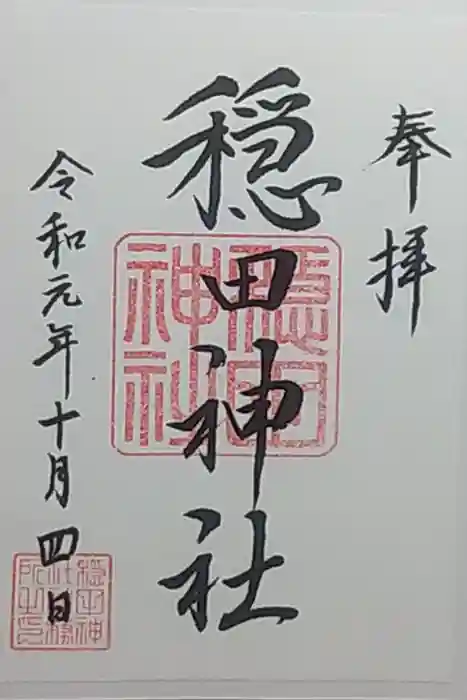 奉拝
穏田神社
穏田神社
令和元年十月四日
穏田神社社務所之印